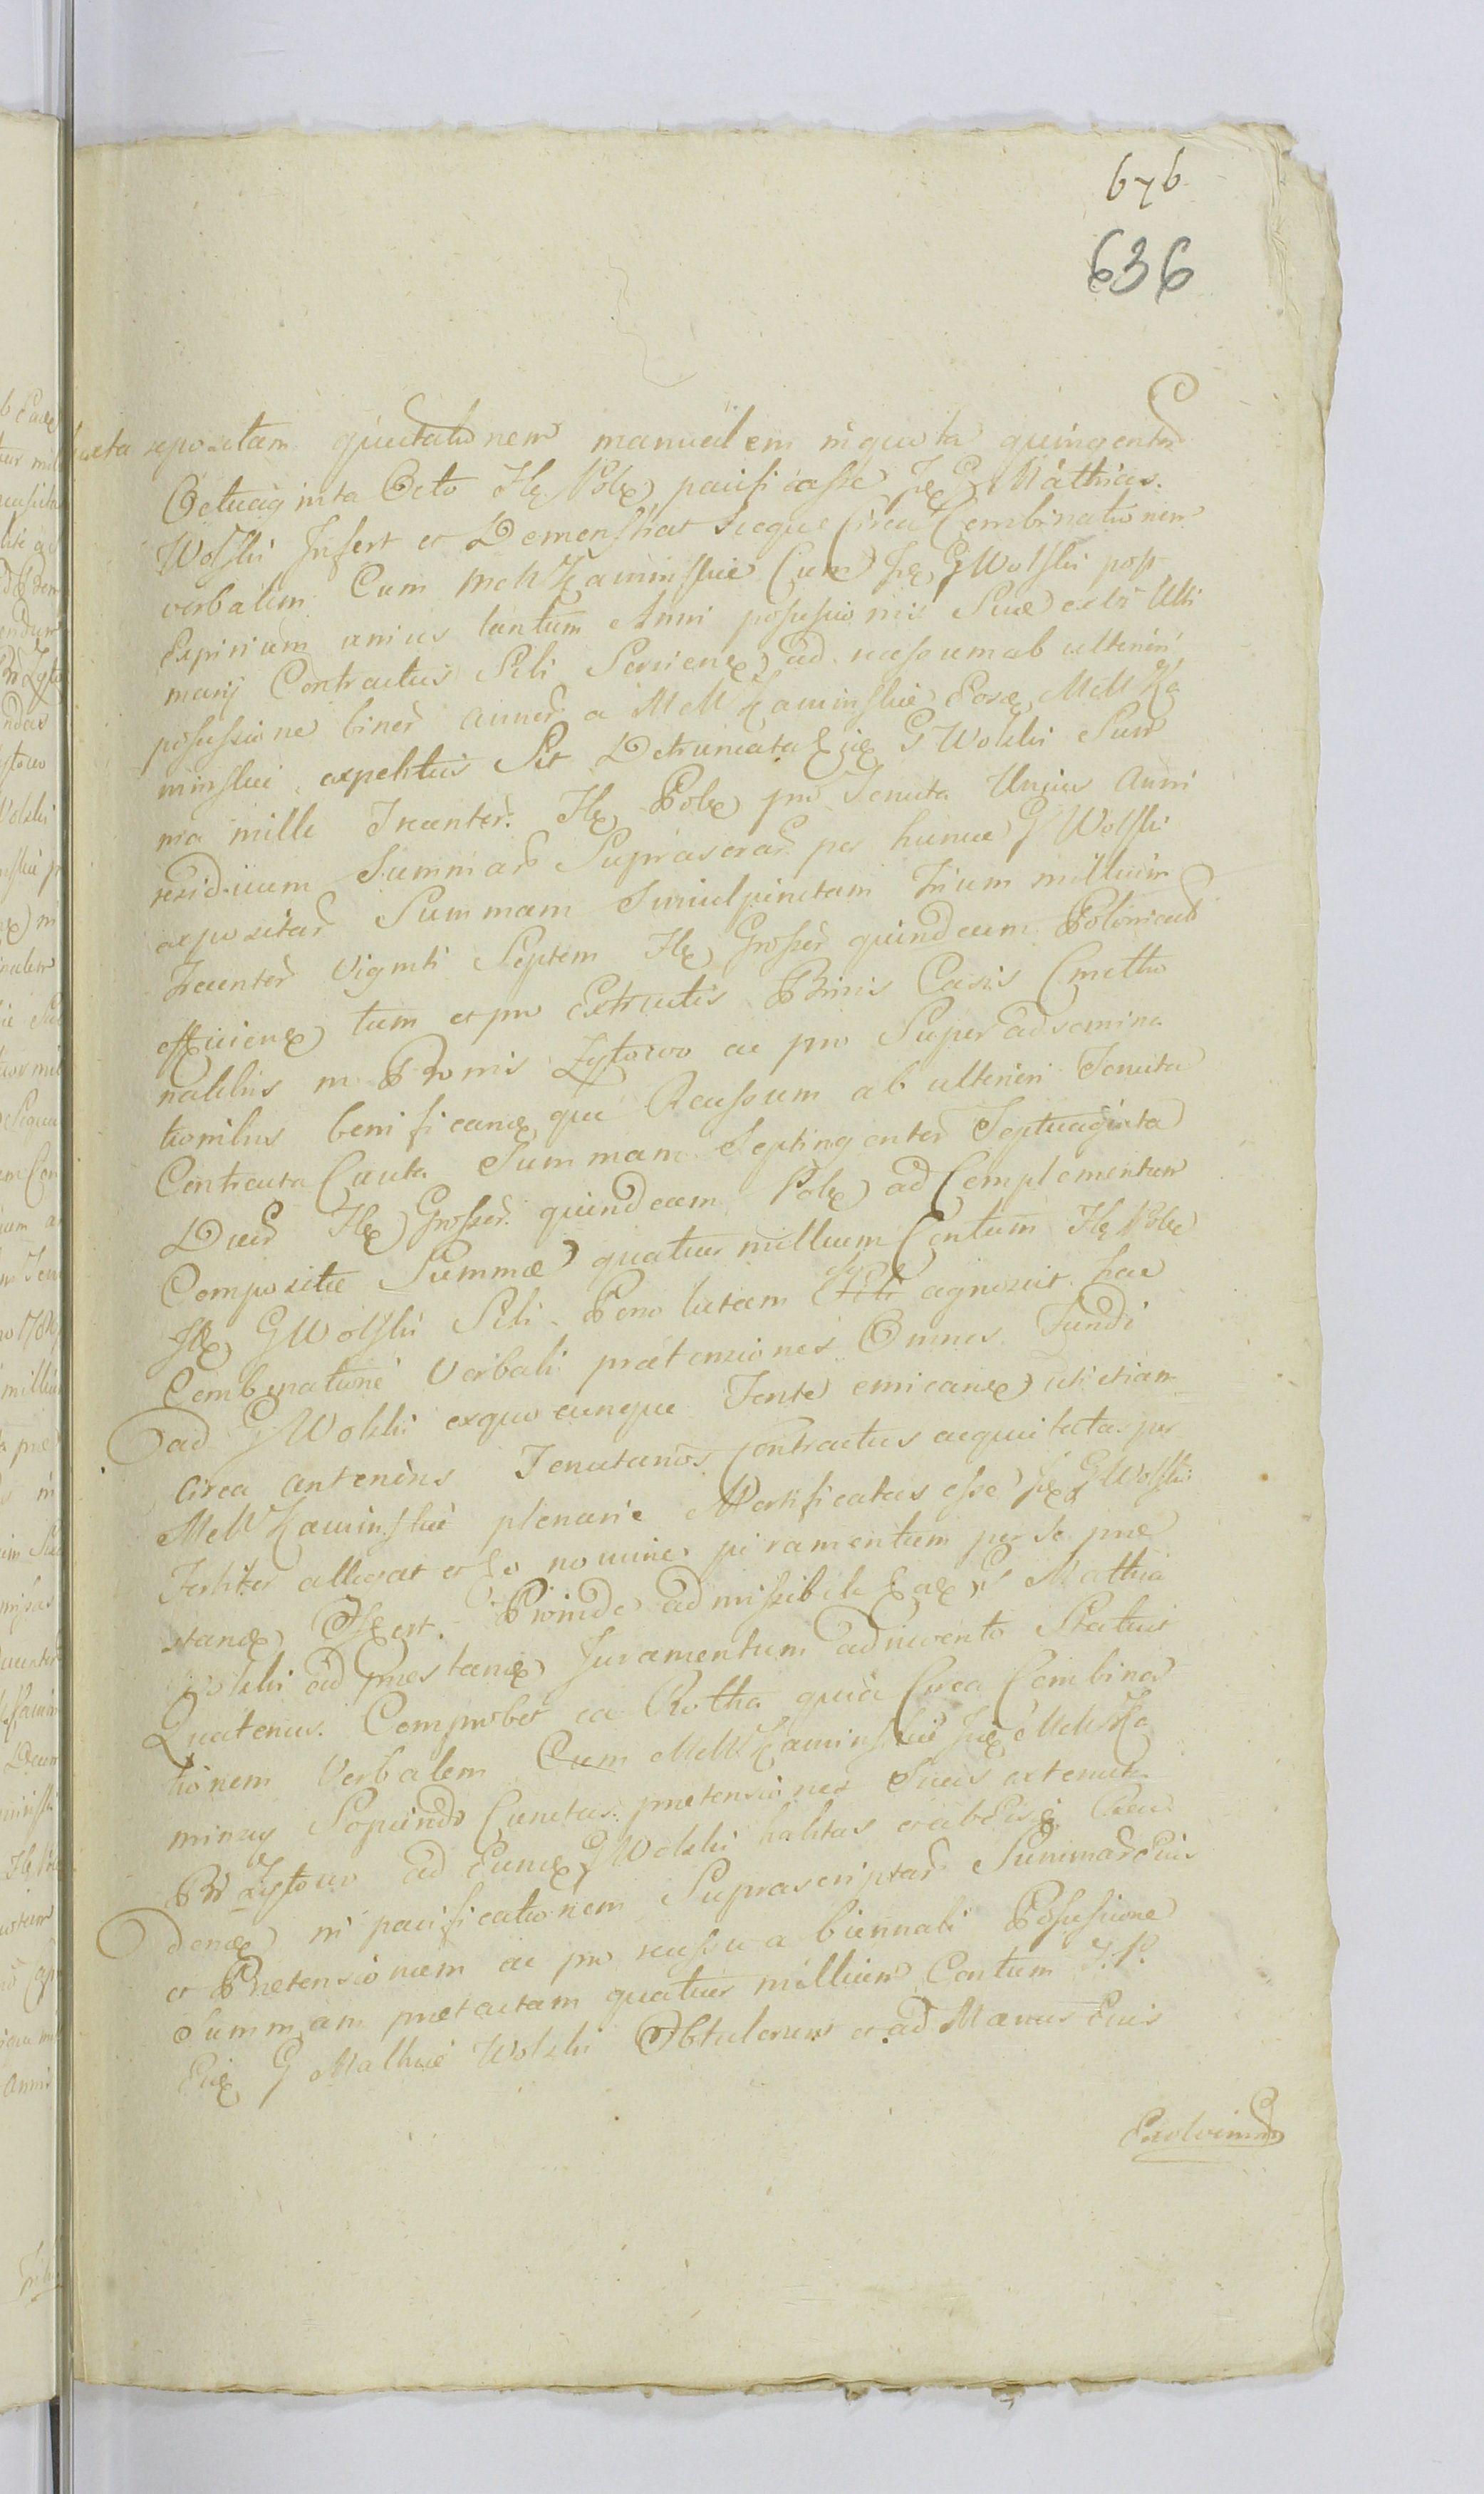 676
636
juxta repositam quietationem manualem in quota quingentor
Octuaginta Octo Flor Polon pacificasse Jdem G Mathias
Wolski Infert et Demonstrat Sicque Circa Combinationem
verbalem Cum MM Kaminskie Cum G Wolski post
Expirium unius tantum Anni possessionis Suae extri Ulti
marij Contractus Sibi Servienem ad recessum ab ulteriori
possessione binor annor a MM Kaminskie MM Ka
minskie expeditus Sit Detruncata G Wolski Sum
ma mille Trecentor Flor Polon pro Tenuta Unius Anni
residuum Summar Suprascrar per hunc G Wolski
expositar Summam Simulpinctam Trium millium
Trecentor Viginti Septem Flor Grossor quindecim Polonical
efficiens tum et pro Extructis Binis Casis Cmetho
nalibus in Bonis Zytowo ac pro Super adsemina
tionibus que Recessum ab ulteriori Tenuta
Contracta Cauta Summam Septingentor Septuaginta
Duor Flor Grossor quindecim Polon ad Complementum
Compositae Summae quatuor millium Centum Flor Polon
G Wolski Sibi Persolutam agnoscit hac
Combinatione Verbali praetensiones Omnes Fundi
ad G Wolski exquocunque Fonte emicanes uti etiam
circa anterioris Tenutarios Contractus acquisitas per
MM Kaminskie plenarie Mortificatas esse G Wolski
Fortiter allegat et Eo nomine juramentum per se prae
stanem Offert. Proinde admissibile G Mathia
Wolski ad praestanem Juramentum adinvento Statuit
Quatenus Comprobet ea Rotha quia Circa Combina
tionem Verbalem Cum MM Kaminskie MM Ka
minscy Sopiendo Cunctas praetensiones Suas extenuta
Zytowo ad Eundem G Wolski habitas
in pacificationem Suprascriptar Summar Eius
et Praetensionum ac pro recessu a biennali Possessione
Summam praetactam quatuor millium Centum F. P.
G Mathiae Wolski Obtulerunt et ad Manus Eius